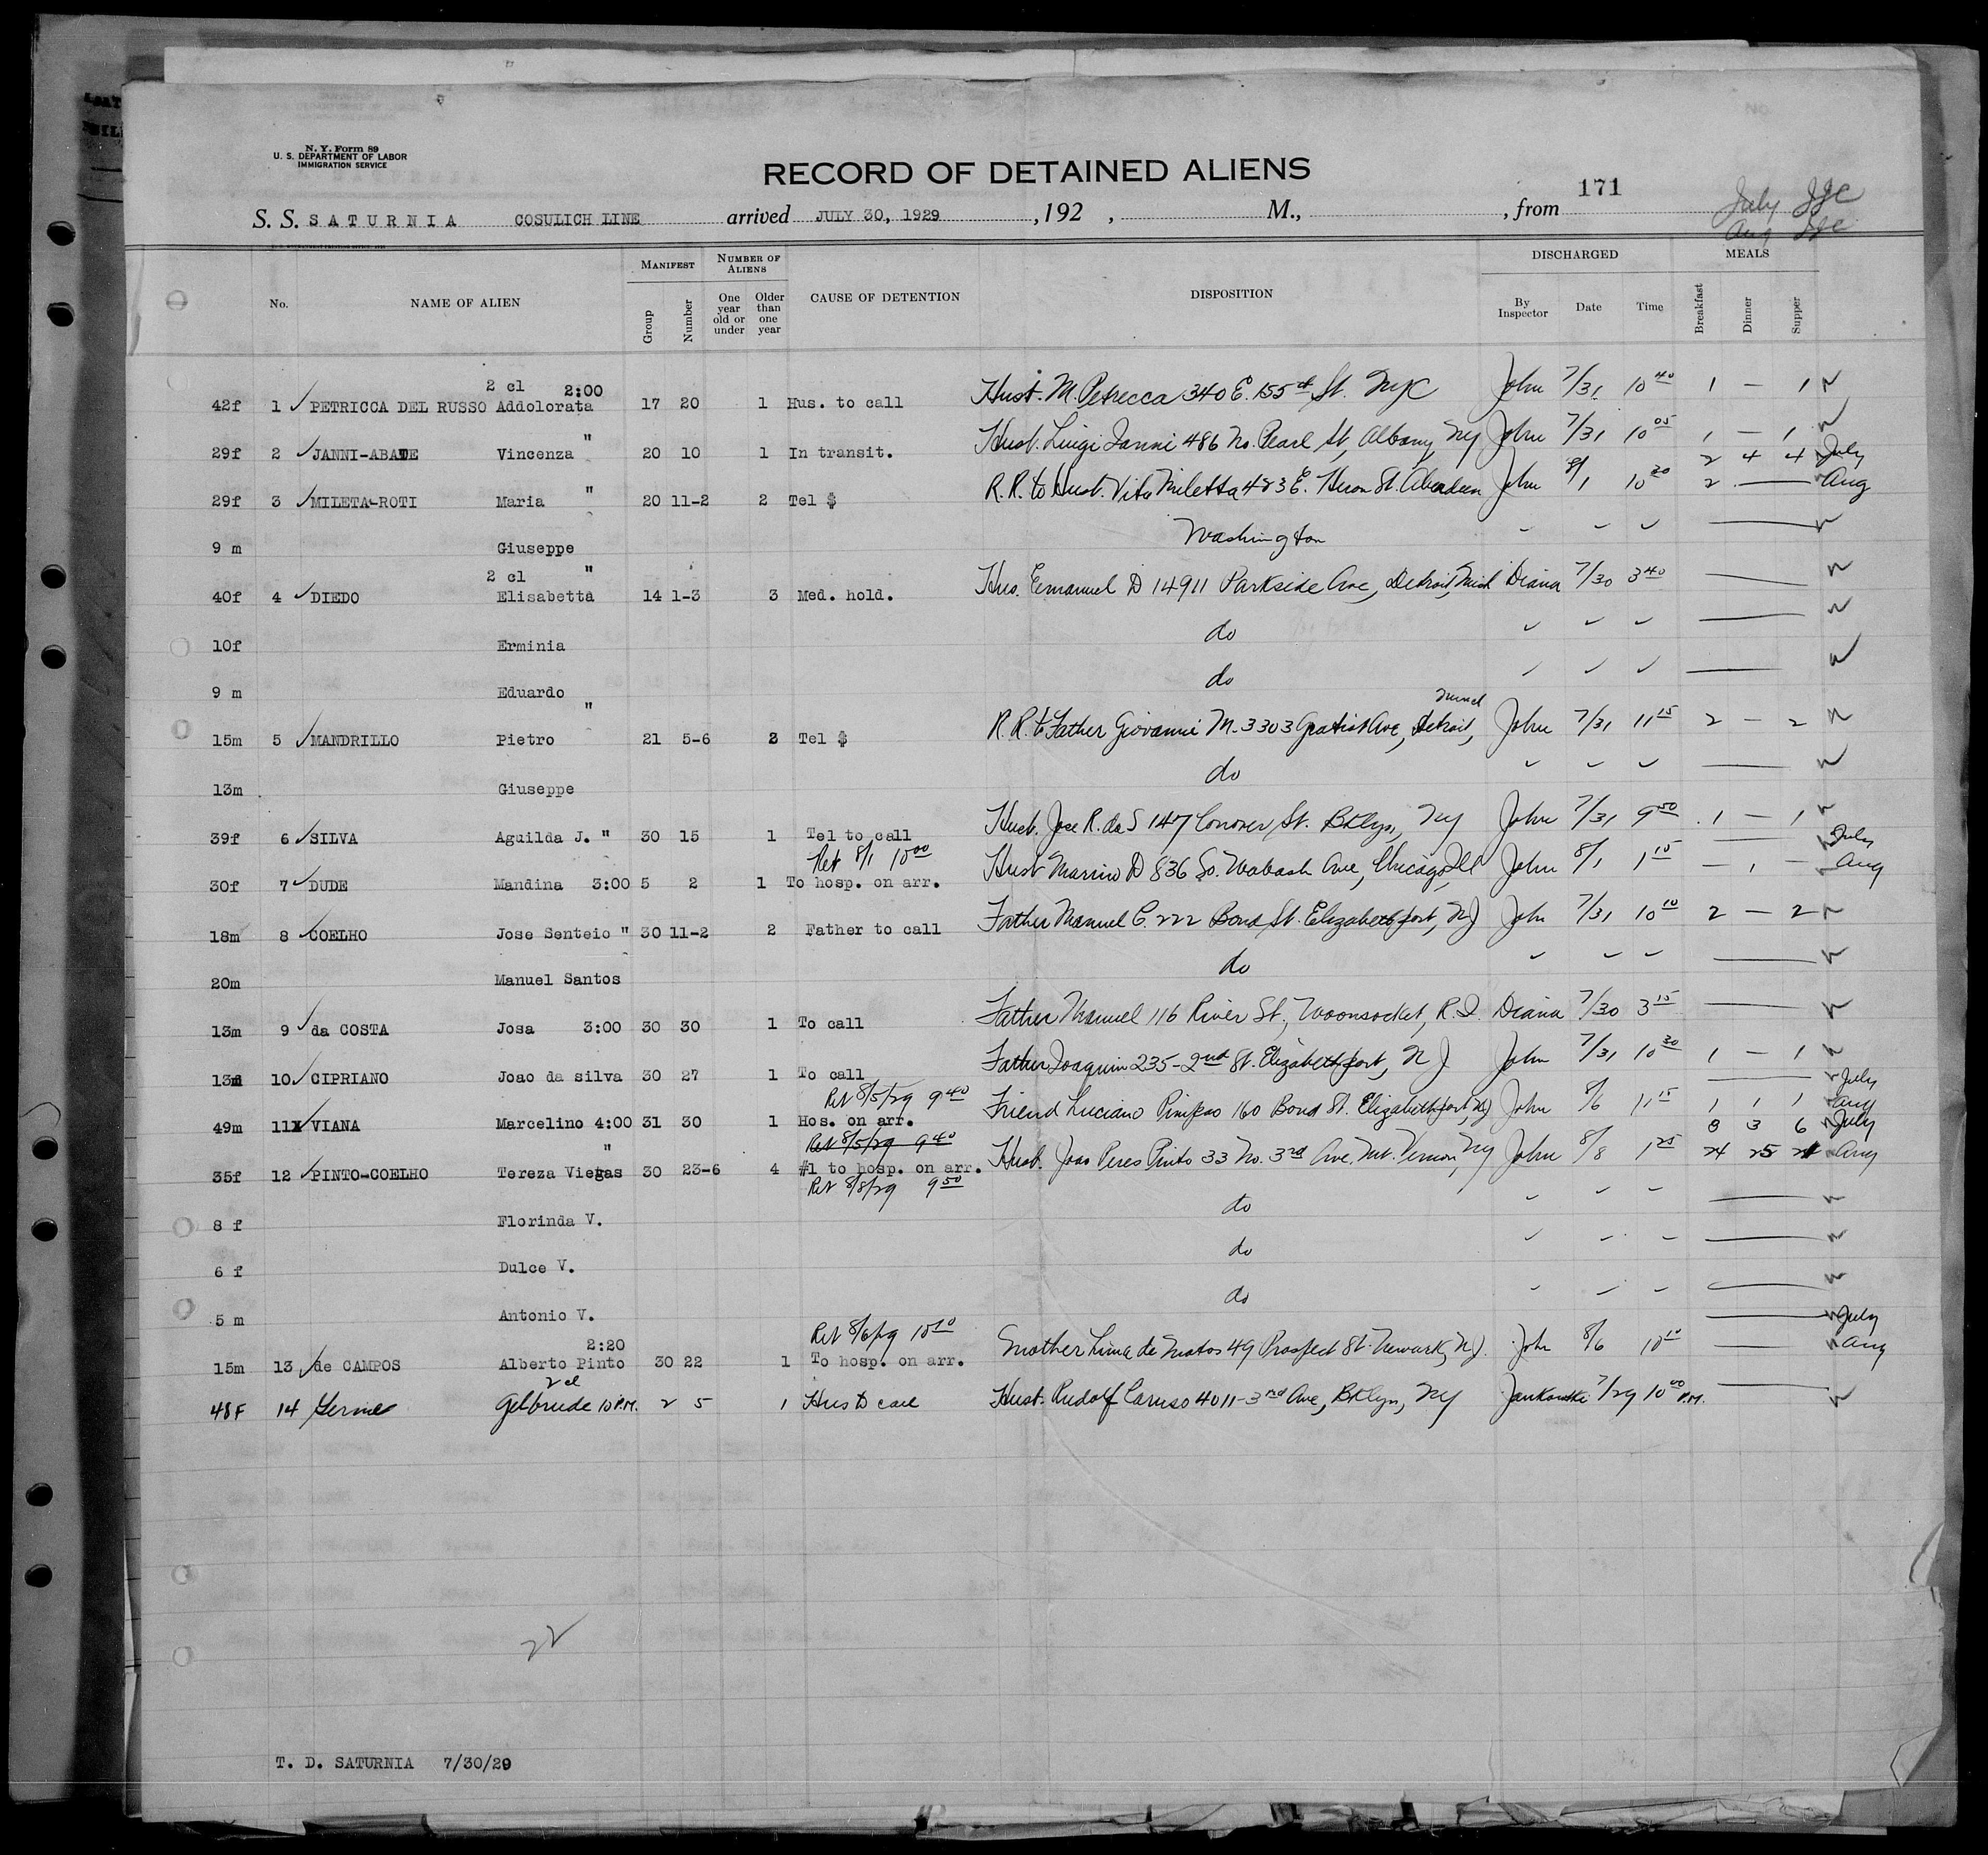 N. Y. Form 89
U. S. DEPARTMENT OF LABOR
IMMIGRATION SERVICE
RECORD OF DETAINED ALIENS
171
July JJC
Aug JJC
S. S. SATURNIA COSULICH LINE arrived JULY 30, 1929 , 192 , M., , from
No. NAME OF ALIEN MANIFEST Group Number NUMBER OF ALIENS One year old or under Older than one year CAUSE OF DETENTION DISPOSITION DISCHARGED By Inspector Date Time MEALS Breakfast Dinner Supper
2 cl 2:00
42f 1 ✓ PETRICCA DEL RUSSO Addolorata 17 20 1 Hus. to call Husb. M. Petrecca 340 E. 155th St. NYC John 7/31 10 40 1 — 1
29f 2 ✓ JANNI-ABATE Vincenza " 20 10 1 In transit. Husb. Luigi Janni 486 No. Pearl St, Albany, NY John 7/31 10 05 1 — 1
2 4 4 July
29f 3 ✓ MILETA-ROTI Maria " 20 11-2 2 Tel $ R.R. to Husb. Vito Miletta 483 E. Heron St. Aberdeen John 8/1 10 30 2 — Aug
9 m Giuseppe Washington
2 cl "
40f 4 ✓ DIEDO Elisabetta 14 1-3 3 Med. hold. Hus. Emanuel D 14911 Parkside Ave, Detroit, Mich Diana 7/30 3 40
10f Erminia do
9 m Eduardo do
15m 5 ✓ MANDRILLO Pietro " 21 5-6 2 Tel $ R.R. to Father Giovanni M. 3303 Gratiot Ave, Detroit, John 7/31 11 15 2 — 2
13m Giuseppe do
39f 6 ✓ SILVA Aguilda J. " 30 15 1 Tel to call Husb. Jose R. da S 147 Conover St. Bklyn, NY John 7/31 9 50 1 — 1
Ret 8/1 10 00 July
30f 7 ✓ DUDE Mandina 3:00 5 2 1 To hosp. on arr. Husb Marino D 836 So. Wabash Ave, Chicago, Ill John 8/1 1 15 — 1 — Aug
18m 8 ✓ COELHO Jose Senteio " 30 11-2 2 Father to call Father Manuel C. 222 Bond St. Elizabethport, NJ John 7/31 10 10 2 — 2
20m Manuel Santos do
13m 9 ✓ da COSTA Josa 3:00 30 30 1 To call Father Manuel 116 River St, Woonsocket, R.I. Diana 7/30 3 15
13m 10 ✓ CIPRIANO Joao da silva 30 27 1 To call Father Joaquim 235-2nd St. Elizabethport, NJ John 7/31 10 30 1 — 1
Ret 8/5/29 9 40 July
49m 11 VIANA Marcelino 4:00 31 30 1 Hos. on arr. Friend Luciano 160 Bond St. Elizabethport, NJ John 8/6 11 15 1 1 1 Aug
Ret 8/5/29 9 40 8 3 6 July
35f 12 ✓ PINTO-COELHO Tereza Viegas " 30 23-6 4 #1 to hosp. on arr. Husb. Joao Peres Pinto 33 No. 3rd Ave. Mt. Vernon, NY John 8/8 1 25 24 25 21 Aug
Ret 8/8/29 9 50
8 f Florinda V. do
6 f Dulce V. do
5 m Antonio V. do
2:20 Ret 8/6/29 July
15m 13 ✓ de CAMPOS Alberto Pinto 30 22 1 To hosp. on arr. Mother Lima de Matos 49 Prospect St. Newark, NJ. John 8/6 10 10 — Aug
2 cl
48F 14 10 P.M. 2 5 1 Hus to call Husb. Rudolf Caruso 4011-3rd Ave, Bklyn, NY 7/29 10 00 P.M.
22
T. D. SATURNIA 7/30/29